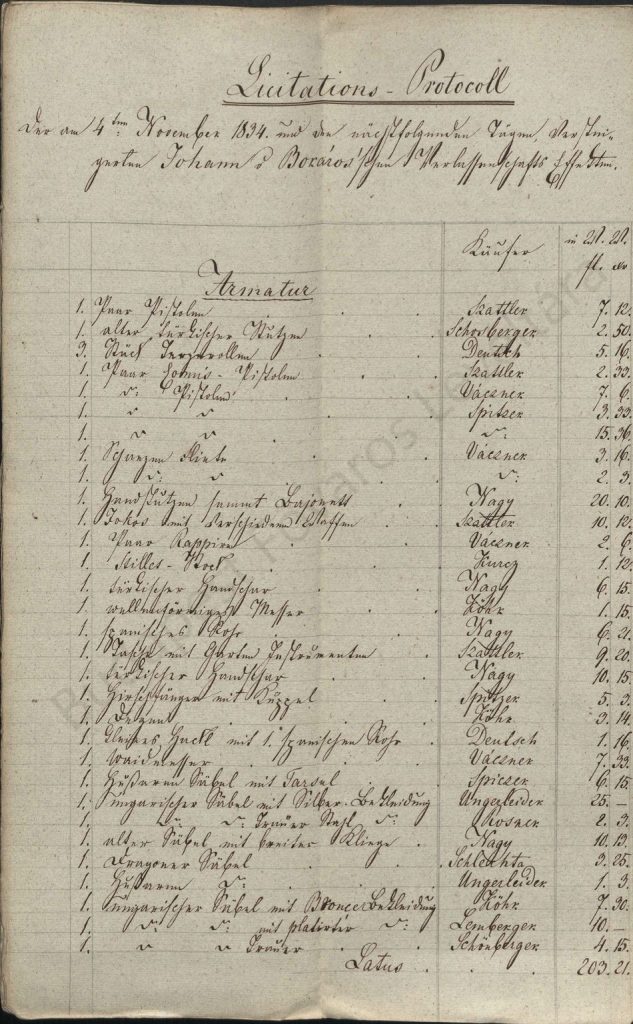 Licitations-Protocoll
Der am 4ten November 1834. und den nächstfolgenden Tägen, verstei-
gerten Johann v Bozáros'schen Verlassenschafts Effecten.
Käufer in W. W.
fl. xr
Armatur
1. Paar Pistolen Szattler 7. 12.
1. alter türkischer Stutzen Schönberger 2. 50.
3. Stück Terzerollen Deutsch 5. 16.
1. Paar Pistolen Szattler 2. 33.
1. do: Pistolen Váczner 7. 6.
1. " " Spitzer 3. 33.
1. " " do: 15. 36.
1. Flinte Váczner 3. 16.
1. do: do: do: 2. 3.
1. Handstutzen sammt Bajonett Nagy 20. 10.
1. mit verschiedenen Waffen Szattler 10. 12.
1. Paar Rappire Váczner 2. 6.
1. Stilles-Stock Kurcz 1. 12.
1. türkischer Handschar Nagy 6. 15.
1. wellenförmiges Messer Köhr 1. 15.
1. spanisches Rohr Nagy 6. 21.
1. Tasche mit Garten Instrumenten Szattler 9. 20.
1. türkischer Handschar Nagy 10. 15.
1. Hirschfänger mit Kuppel Spitzer 5. 3.
1. Degen Köhr 3. 14.
1. kleines Hackl mit 1. spanischen Rohr Deutsch 1. 16.
1. Waidmesser Váczner 7. 33.
1. Hußaren Säbel mit Spiczer 6. 15.
1. ungarischer Säbel mit Silber-Bekleidung Ungerleider 25. –
1. do: do: Trauer Stahl do: Rosner 2. 3.
1. alter Säbel mit breiter Klinge Nagy 10. 13.
1. Dragoner Säbel Schlechta 3. 25.
1. Hußaren do: Ungerleider 1. 3.
1. ungarischer Säbel mit Broncebekleidung Köhr 7. 30.
1. do: do: mit platirter do: Lemberger 10. –
1. " " Trauer Schönberger 4. 15.
Latus 203. 21.